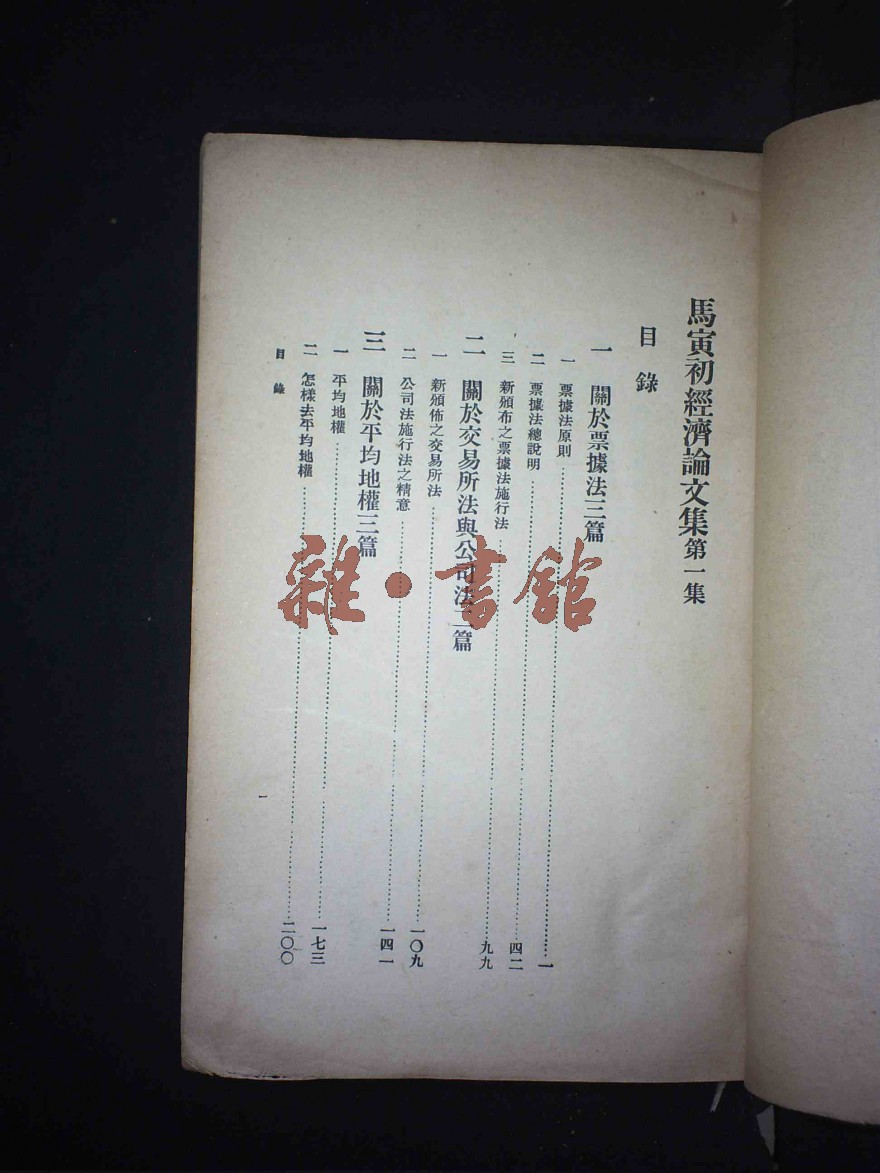 馬寅初經濟論文集第一集
目錄
一 關於票據法三篇
一 票據法原則 一
二 票據法總說明 四二
三 新頒布之票據法施行法 九九
二 關於交易所法與公司法二篇
一 新頒佈之交易所法 一〇九
二 公司法施行法之精意 一四一
三 關於平均地權三篇
一 平均地權 一七三
二 怎樣去平均地權 二〇〇
目錄
一
雜·書館